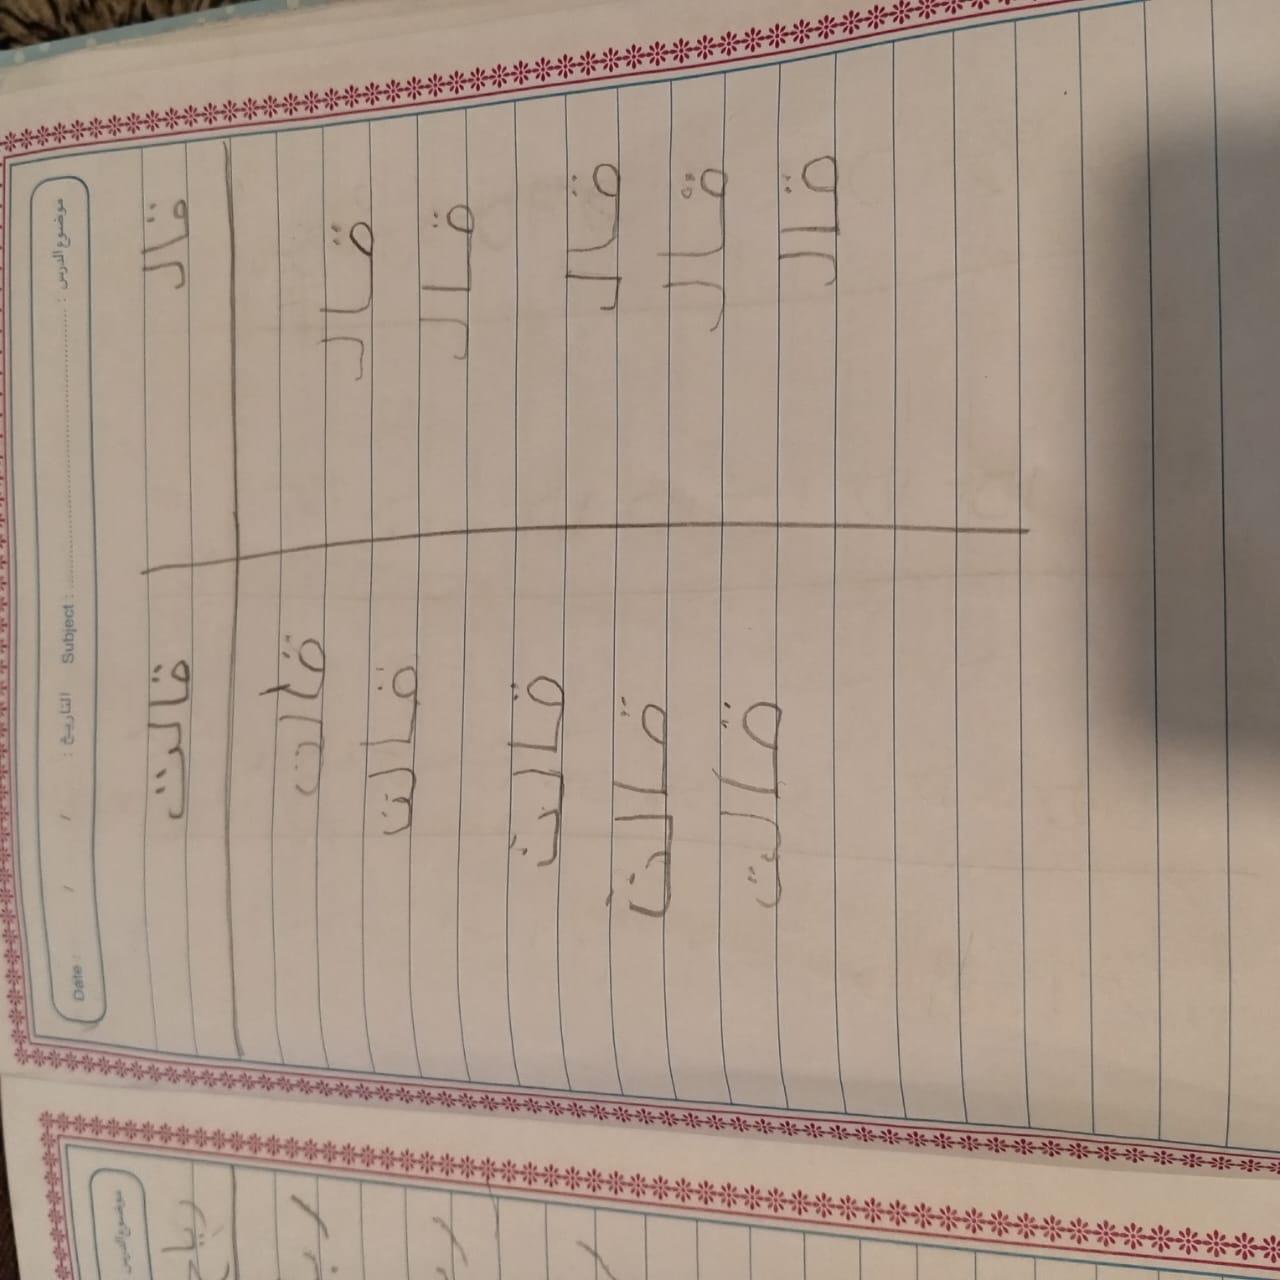 موضوع الدرس : Subject : التاريخ : / / Date :
قال قالت
قالت
قال
قالت
قال
قالت
قال
قالت
قال
قالت
قال
موضوع الدرس
رياح